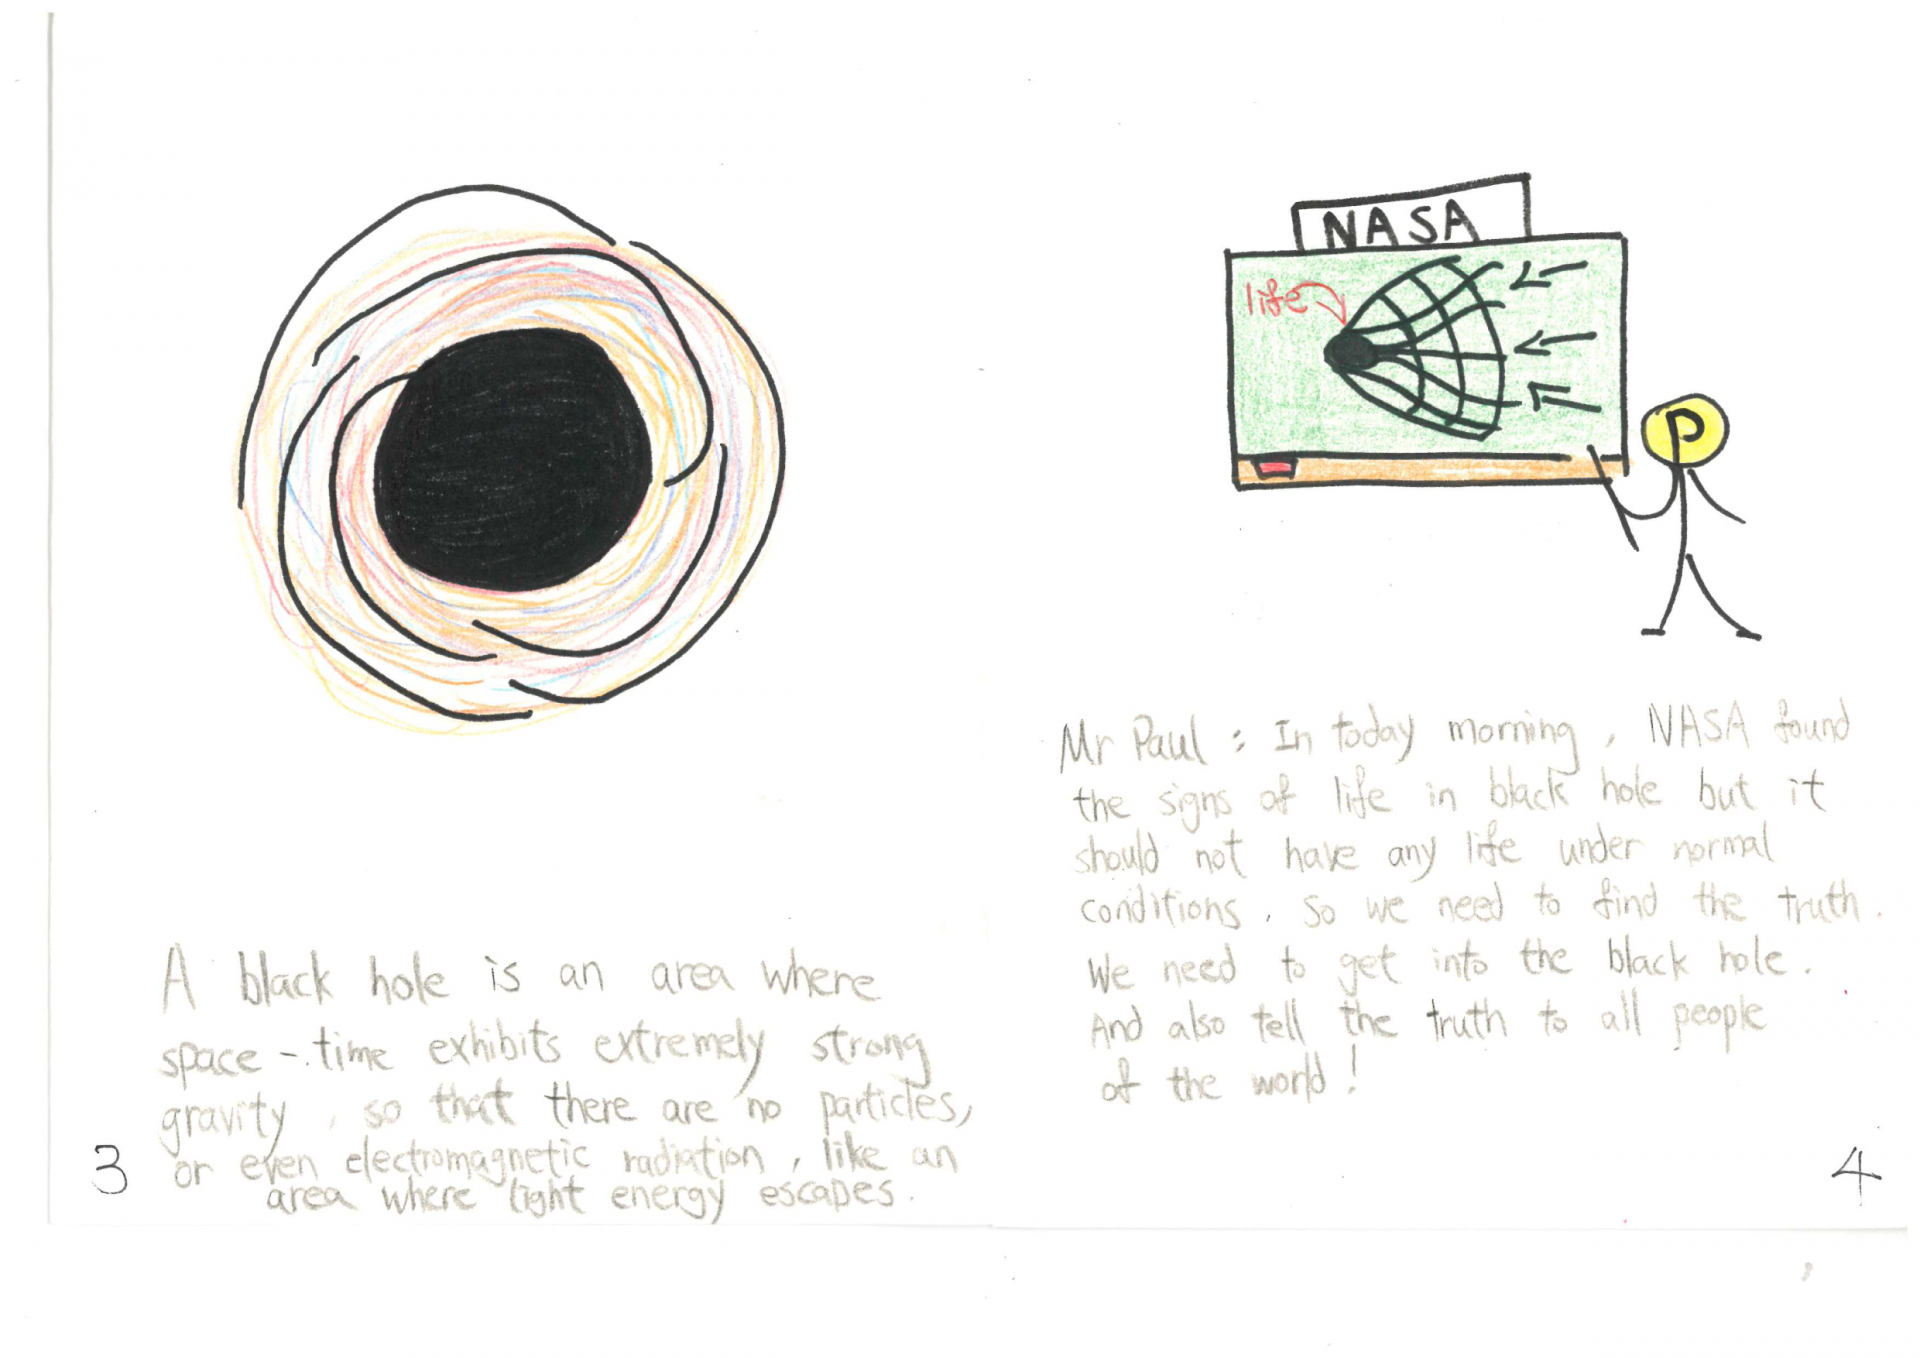 A black hole is an area where
space-time exhibits extremely strong
gravity, so that there are no particles,
or even electromagnetic radiation, like an
area where light energy escapes.
3
NASA
life
P
Mr Paul : In today morning, NASA found
the signs of life in black hole but it
should not have any life under normal
conditions. So we need to find the truth.
We need to get into the black hole.
And also tell the truth to all people
of the world!
4